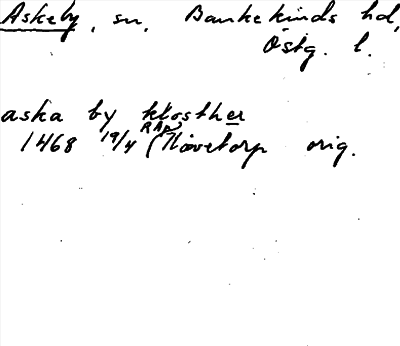 Askeby, sn. Bankekinds hd,
Östg. l.
aska by klosther
RAp
1468 19/4 (Hovetorp orig.